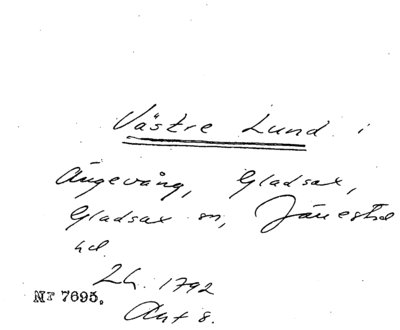 Västre Lund i
Ängavång, Gladsax,
Gladsax sn, Järrestad
hd.
Lh. 1792
Akt 8.
Nr 7695.